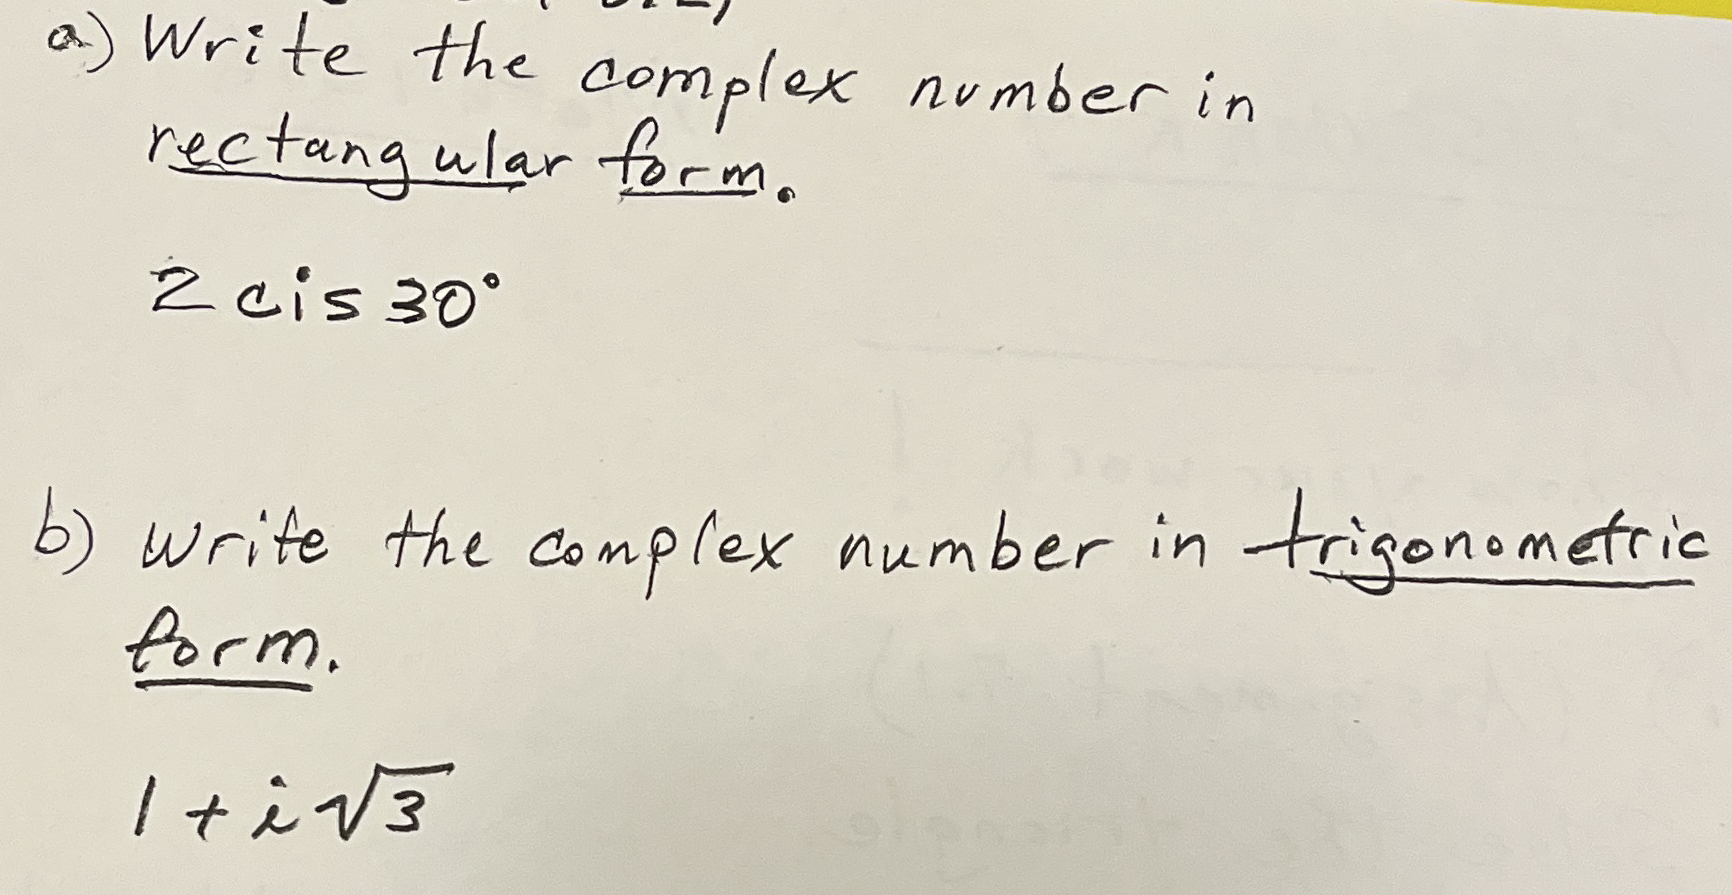 a) Write the complex number in
rectangular form.
2 cis 30°
b) write the complex number in trigonometric
form.
1 + i √3